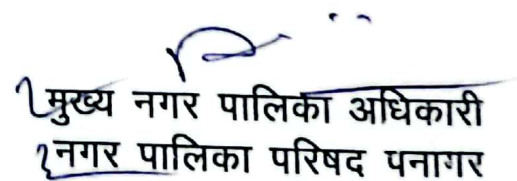 मुख्य नगर पालिका अधिकारी
नगर पालिका परिषद पनागर